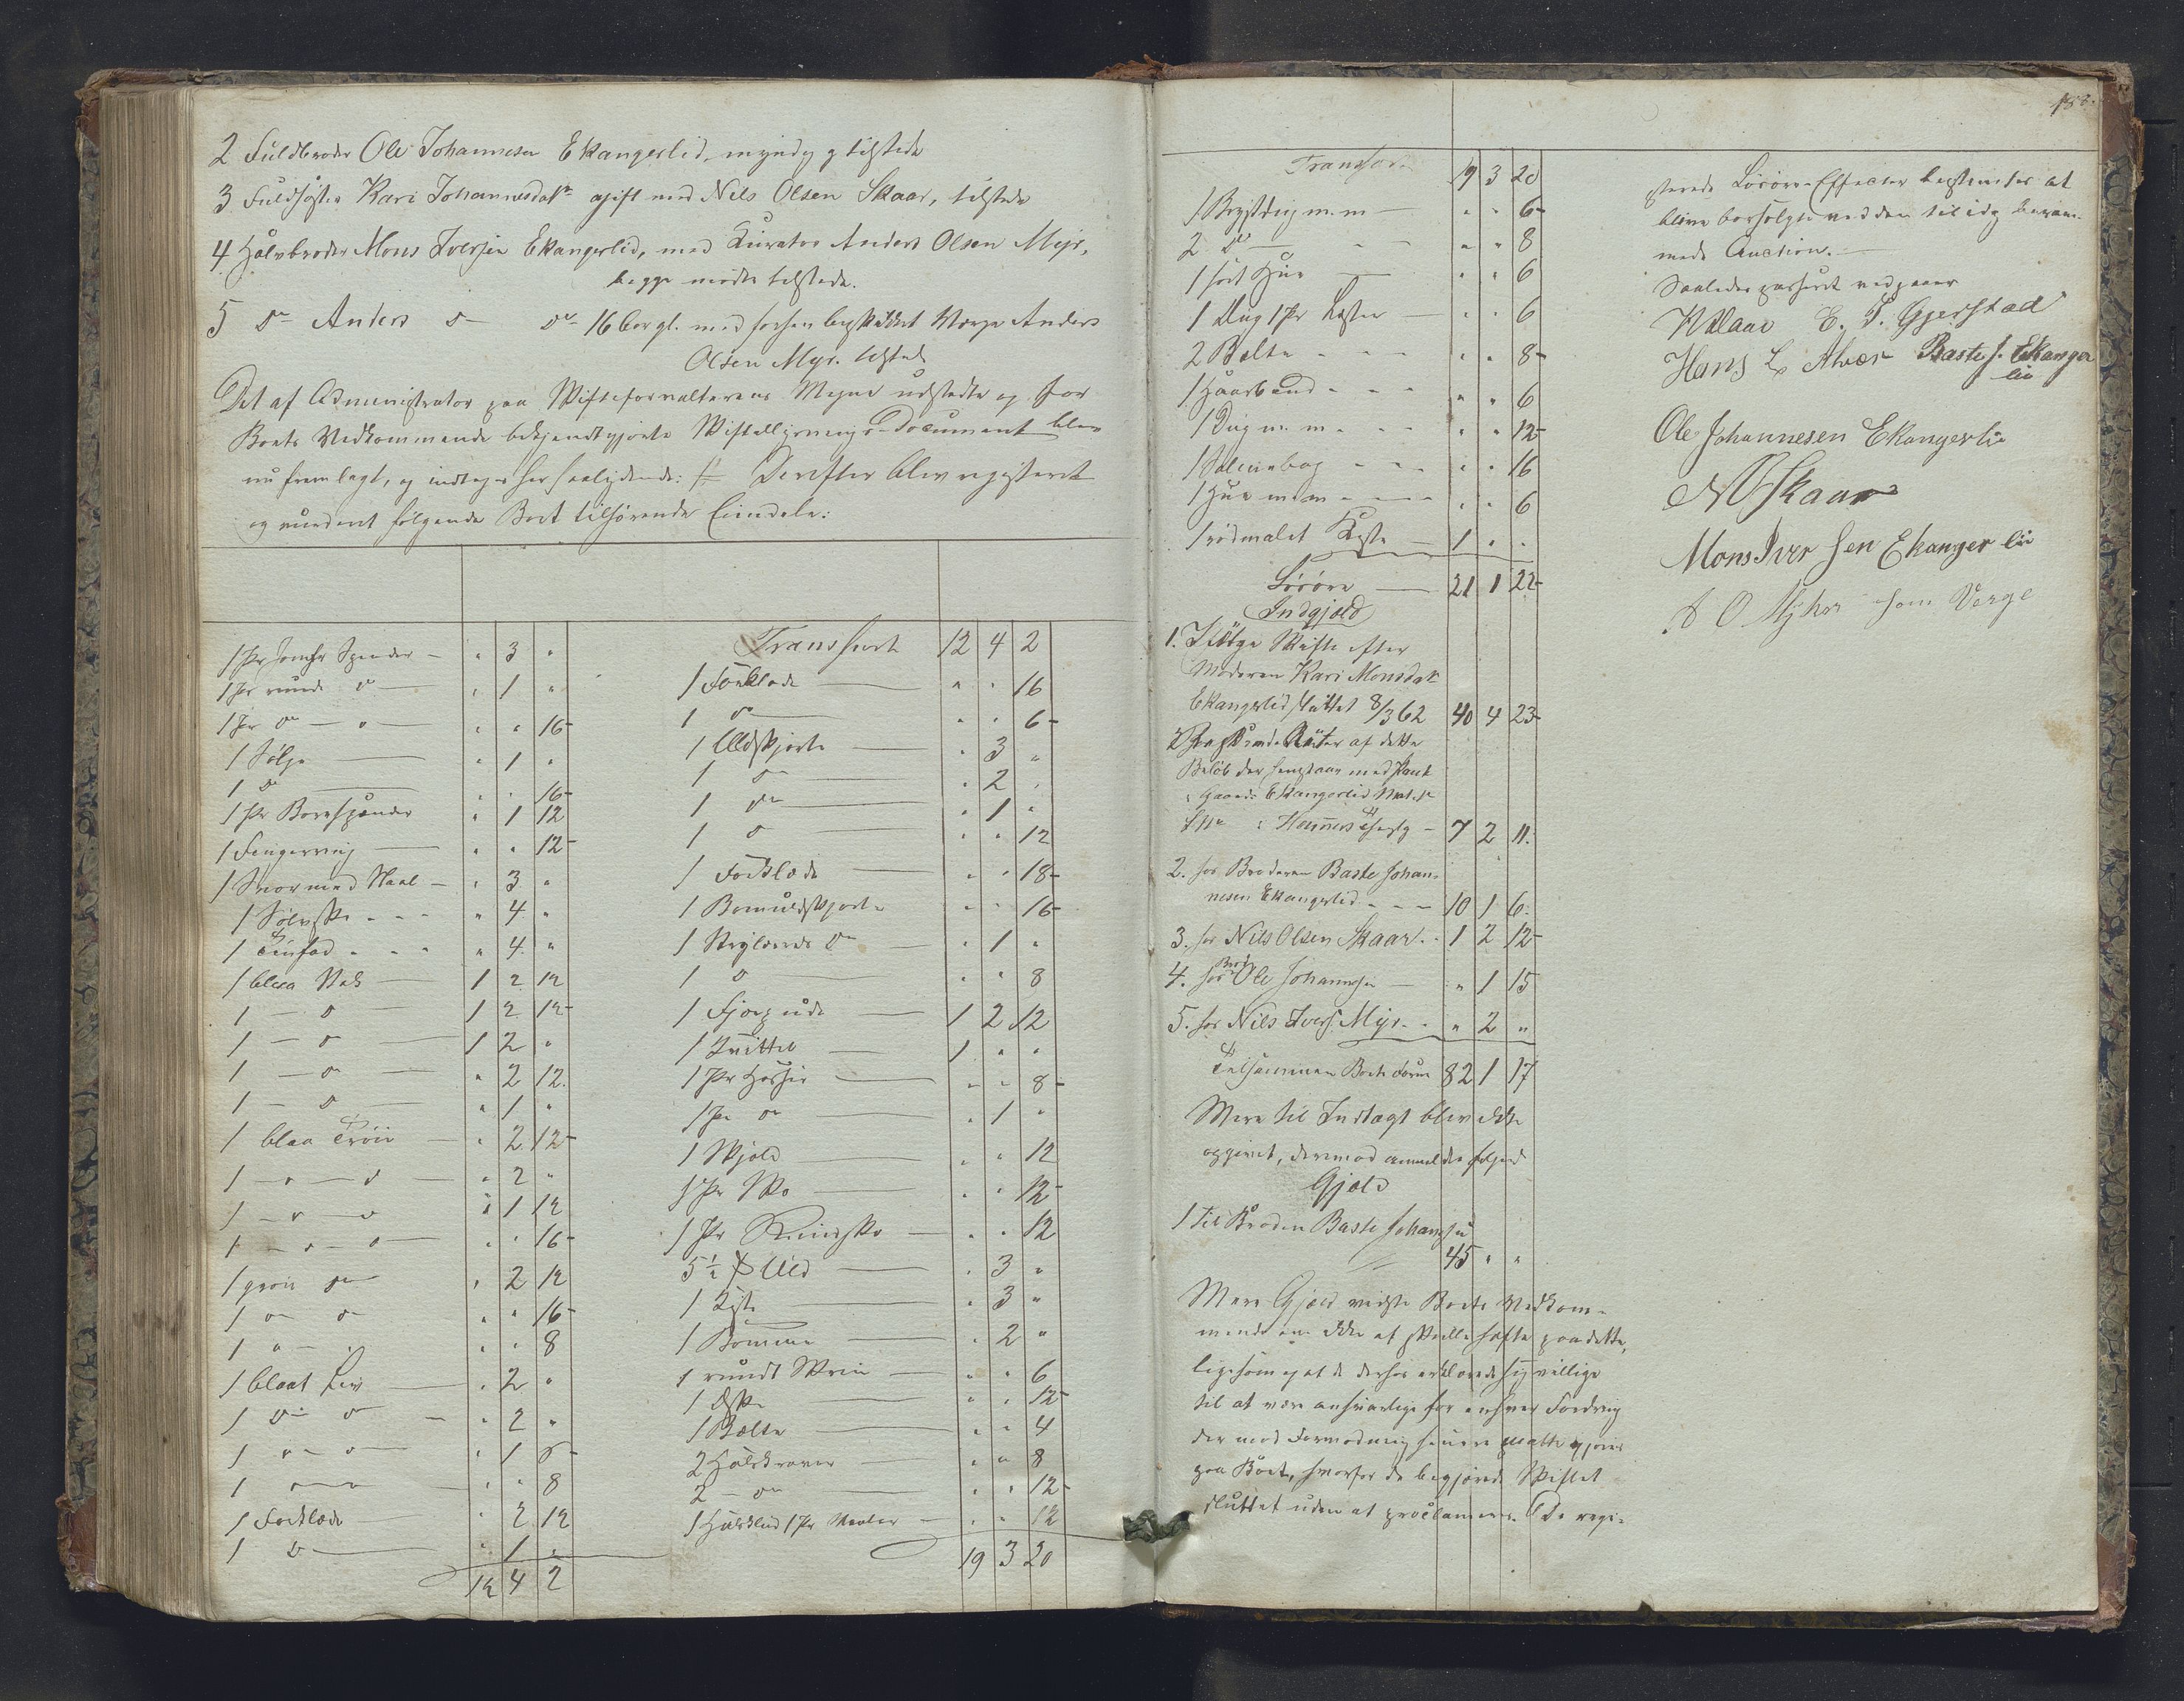 2 Fuldbroder Ole Johannesen Ekangerlid, myndig og tilstede
3 Fuldsøster Kari Johannesdatr gift med Nils Olsen Skaar, tilstede
4 Halvbroder Mons Iversen Ekangerlid, med Kurator Anders Olsen Myr,
begge mødte tilstede.
5 do Anders do do 16 Aar gl. med forhen beskikket Værge Anders
Olsen Myr. tilstede
Det af Administrator paa Skifteforvalterens Vegne udstedte og for
Boets Vedkommende bekjendtgjorte Skifteberammelses-Document blev
nu fremlagt, og indtages her saalydende: # Derefter blev registeret
og vurderet følgende Boet tilhørende Eiendele:
1 Pr Spender - " 3 "
1 Pr runde do " 1 "
1 Pr do " " 16
1 Sølje " 1 "
1 do " " 16
1 Pr Borespænder " 1 12
1 Fingerring " " 12
1 Snor med Naal " 3 "
1 Sølvske " 4 "
1 Tinfad " 4 "
1 blaa Stak 1 2 12
1 - do 1 2 12
1 - do 1 2 "
1 - do " 2 12
1 - do " 1 "
1 blaa Trøie " 2 12
1 - " - do " 2 "
1 - " - do " 1 12
1 - " - do " " 16
1 grøn do " 2 12
1 do do " " 16
1 " - " " 8
1 blaat Liv " 2 "
1 do do " 2 "
1 " - do " 1 8
1 " " 8
1 Forklæde " 2 12
1 do " 1 "
12 4 2
Transport 12 4 2
1 Forklæde " " 16
1 do " " 6
1 Uldskjorte " 3 "
1 do " 2 "
1 do " 1 "
1 do " " 12
1 Forklæde " " 18
1 Bomuldskjorte " " 16
1 Strylærreds do " 1 "
1 do " " 8
1 1 2 12
1 Kvittel 1 " "
1 Pr Hoser " " 8
1 Pr do " 1 "
1 Skjold " " 12
1 Pr Sko " " 12
1 Pr " " 12
5 ½ ℔ Uld " 3 "
1 Kiste " 3 "
1 Bomme " 2 "
1 rundt Skrin " " 6
1 Æske " " 12
1 Bælte " " 4
2 Halskraver " " 8
2 - do " " 12
1 Halsklud 1 Pr Vanter " " 12
19 3 20
188.
Transport 19 3 20
1 Brystdug m. m " " 6
2 do " " 8
1 sort Hue " " 6
1 Dug 1 Pr " " 6
2 Belte " " 8
1 Haarbaand " " 6
1 Dug m. m. " " 12
1 Salmebog " " 16
1 Hue m. m. " " 6
1 rødmalet Kiste 1 " "
Løsøre 21 1 22
Indgjeld
1. Ifølge Skifte efter
Moderen Kari Monsdatr
Ekangerlid sluttet 8/3 62 40 4 23
Renter af dette
Beløb der henstaar med Pant
i Gaarden Ekangerlid Matr.
7 2 11.
2. hos Broderen Baste Johan-
nesen Ekangerlid 10 1 6.
3. hos Nils Olsen Skaar 1 2 12
4. hos Brod. Ole Johannesen " 1 15
5. hos Nils Ivers. Myr " 2 "
Tilsammen Boets Form 82 1 17
Mere til Indtægt blev ikke
opgivet, derimod anmeldes følgende
Gjeld
1 til Broder Baste Johannesen
45 " "
Mere Gjeld vidste Boets Vedkom-
mende ikke at skulle hefte paa dette,
ligesom og at de derfor erklærede sig villige
til at være ansvarlige for enhver Fordring
der mod Formodning senere maatte gjøres
paa Boet, hvorfor de begjerede Skiftet
sluttet uden at proclameres. De regi-
sterede Løsøre-Effecter bestemtes at
blive bortsolgte ved den til idag beram-
mede Auction.
Saaledes passeret vedgaaes
E. T. Gjerstad
Hans L. Alver Baste J. Ekanger
lie
Ole Johannesen Ekangerlie
N O Skaar
Mons Iver sen Ekanger lie
A O Myhr som Verge